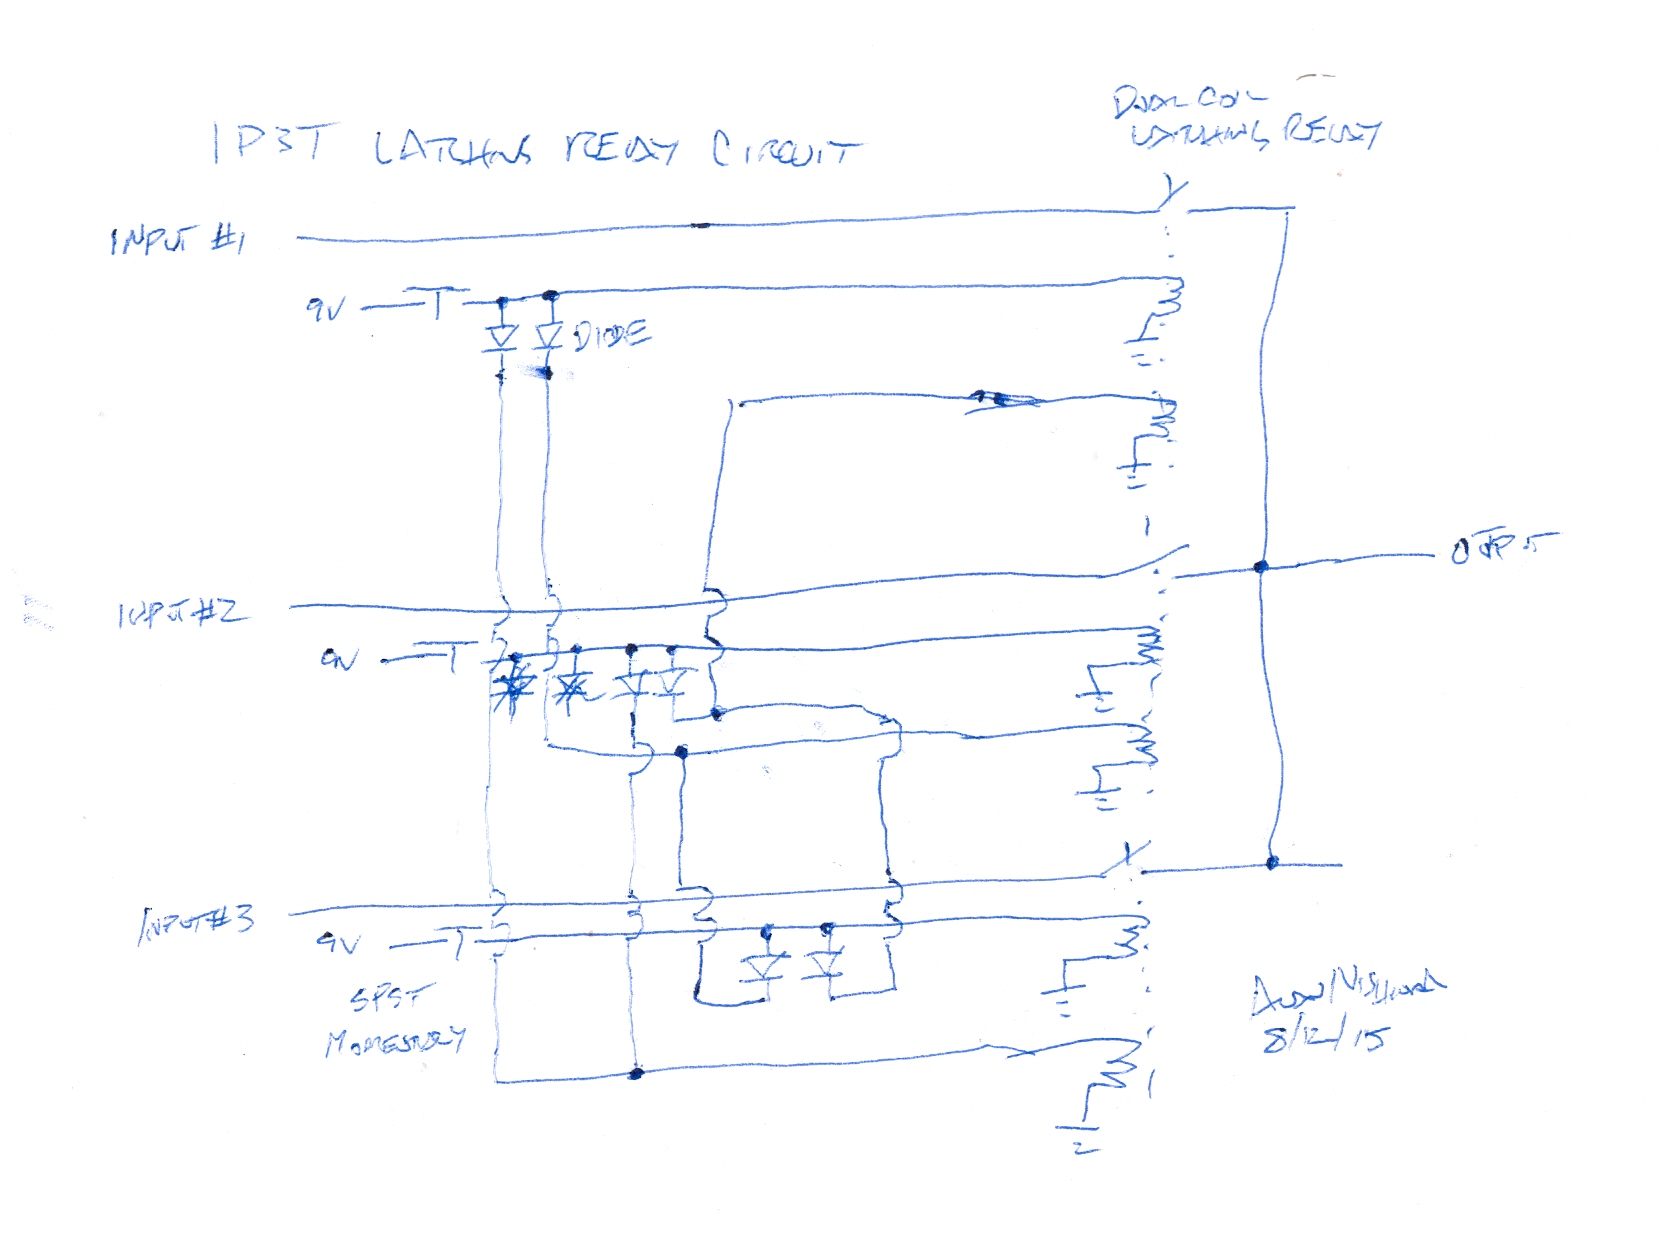 1P3T LATCHING RELAY CIRCUIT
DUAL COIL
LATCHING RELAY
INPUT #1
9V
DIODE
OUTPUT
INPUT #2
9V
INPUT #3
9V
SPST
MOMENTARY
8/12/15